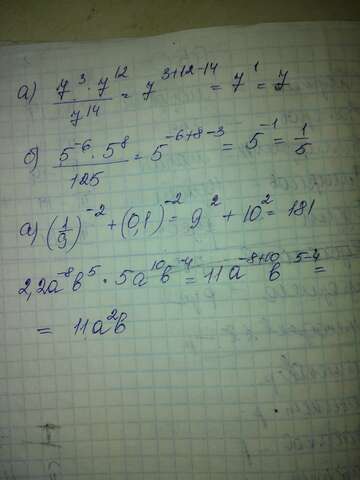 а) y³ · y¹² / y¹⁴ = y³⁺¹²⁻¹⁴ = y¹ = y
б) 5⁻⁶ · 5⁸ / 125 = 5⁻⁶⁺⁸⁻³ = 5⁻¹ = 1/5
а) (1/9)⁻² + (0,1)⁻² = 9² + 10² = 181
2,2a⁻⁸b⁵ · 5a¹⁰b⁻⁴ = 11a⁻⁸⁺¹⁰b⁵⁻⁴ =
= 11a²b